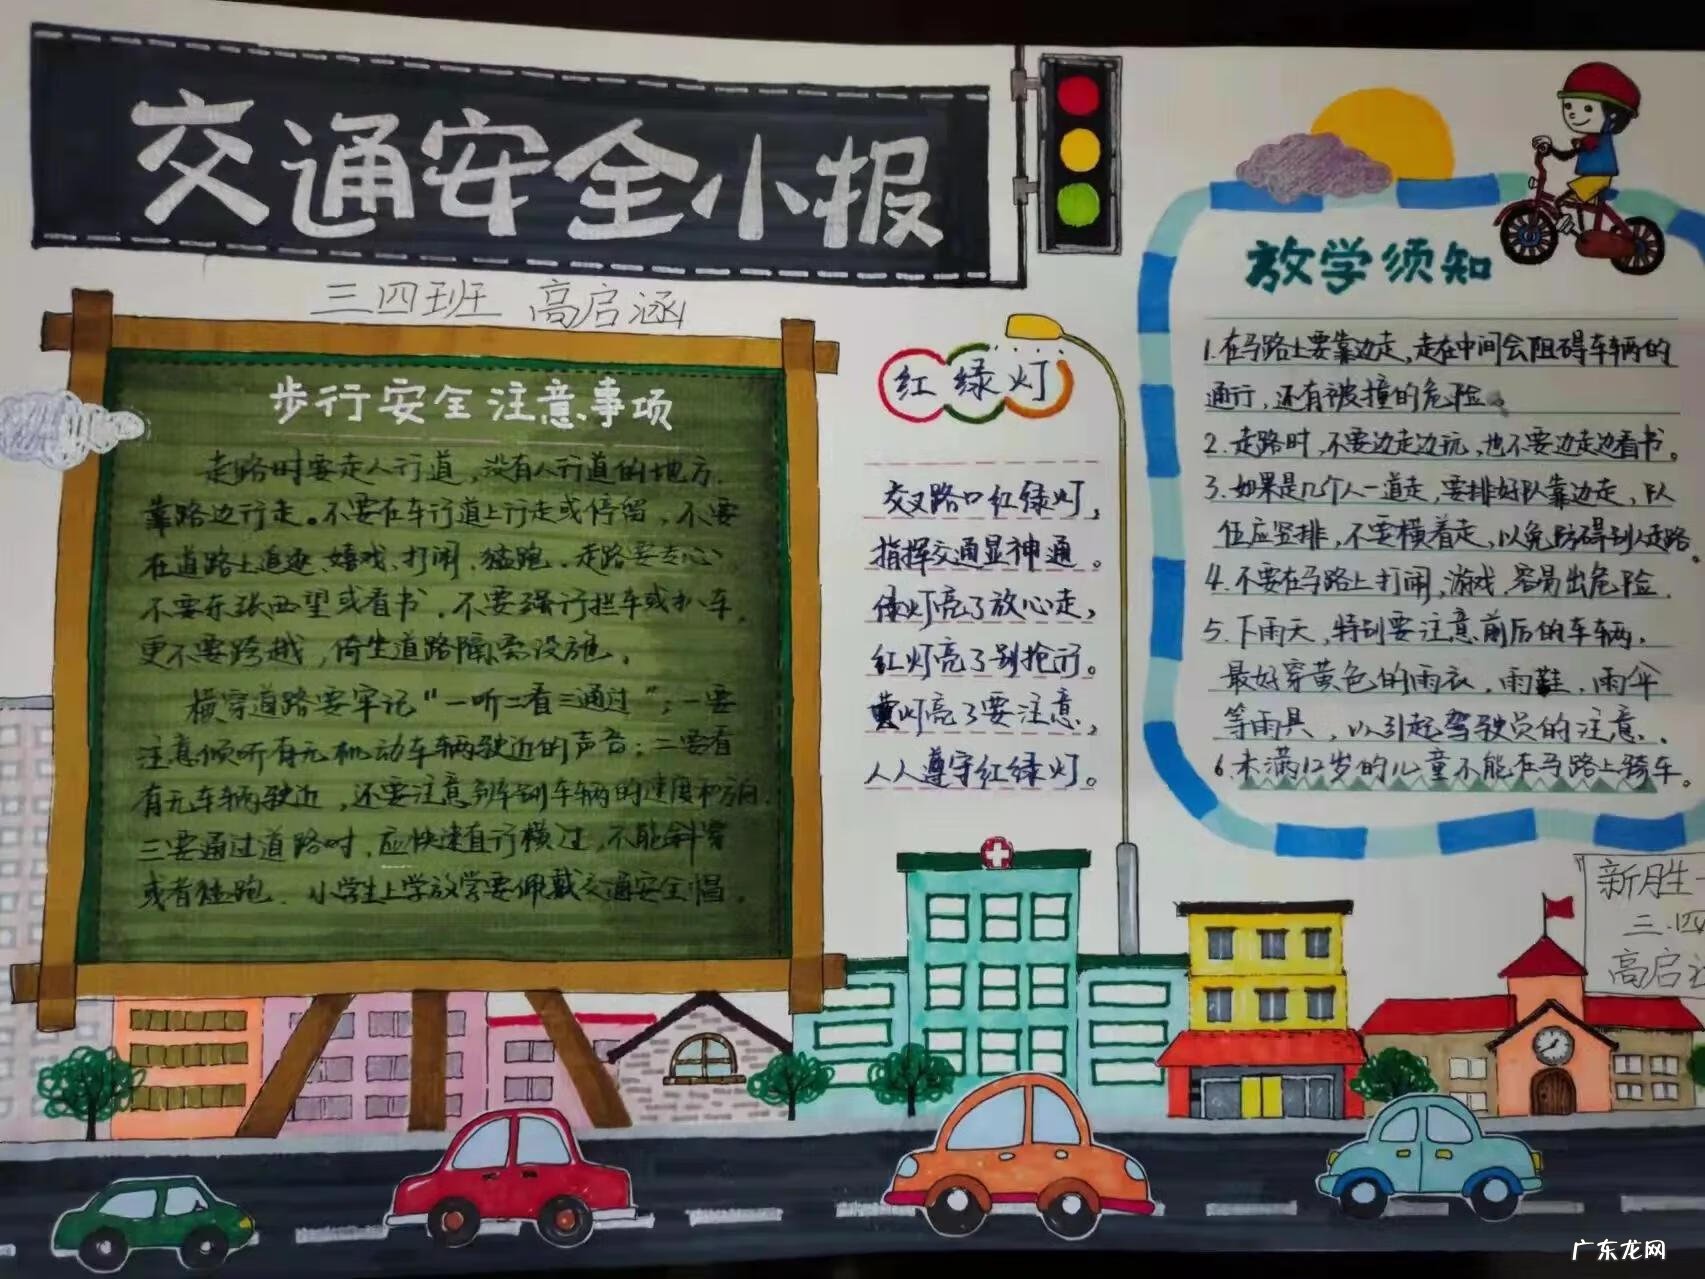 交通安全小报
三四班 高启涵
步行安全注意事项
走路时要走人行道，没有人行道的地方，
靠路边行走。不要在车行道上行走或停留，不要
在道路上追逐、嬉戏、打闹、猛跑。走路要专心
不要东张西望或看书。不要强行拦车或扒车，
更不要跨越，倚坐道路隔离设施。
横穿道路要牢记“一听二看三通过”；一要
注意倾听有无机动车辆驶近的声音；二要看
有无车辆驶近，还要注意车辆的速度和方向.
三要通过道路时，应快速直行横过，不能斜穿
或者猛跑. 小学生上学放学要佩戴交通安全帽.
红绿灯
交叉路口红绿灯，
指挥交通显神通。
绿灯亮了放心走，
红灯亮了别抢行。
黄灯亮了要注意，
人人遵守红绿灯。
放学须知
1.在马路上要靠边走，走在中间会阻碍车辆的
通行，还有被撞的危险。
2.走路时，不要边走边玩，也不要边走边看书。
3.如果是几个人一道走，要排好队靠边走，队
伍应竖排，不要横着走，以免妨碍别人走路。
4.不要在马路上打闹，游戏，容易出危险.
5.下雨天，特别要注意前后的车辆，
最好穿黄色的雨衣，雨鞋，雨伞
等雨具，以引起驾驶员的注意.
6.未满12岁的儿童不能在马路上骑车。
新胜一
三.四
高启
广东龙网